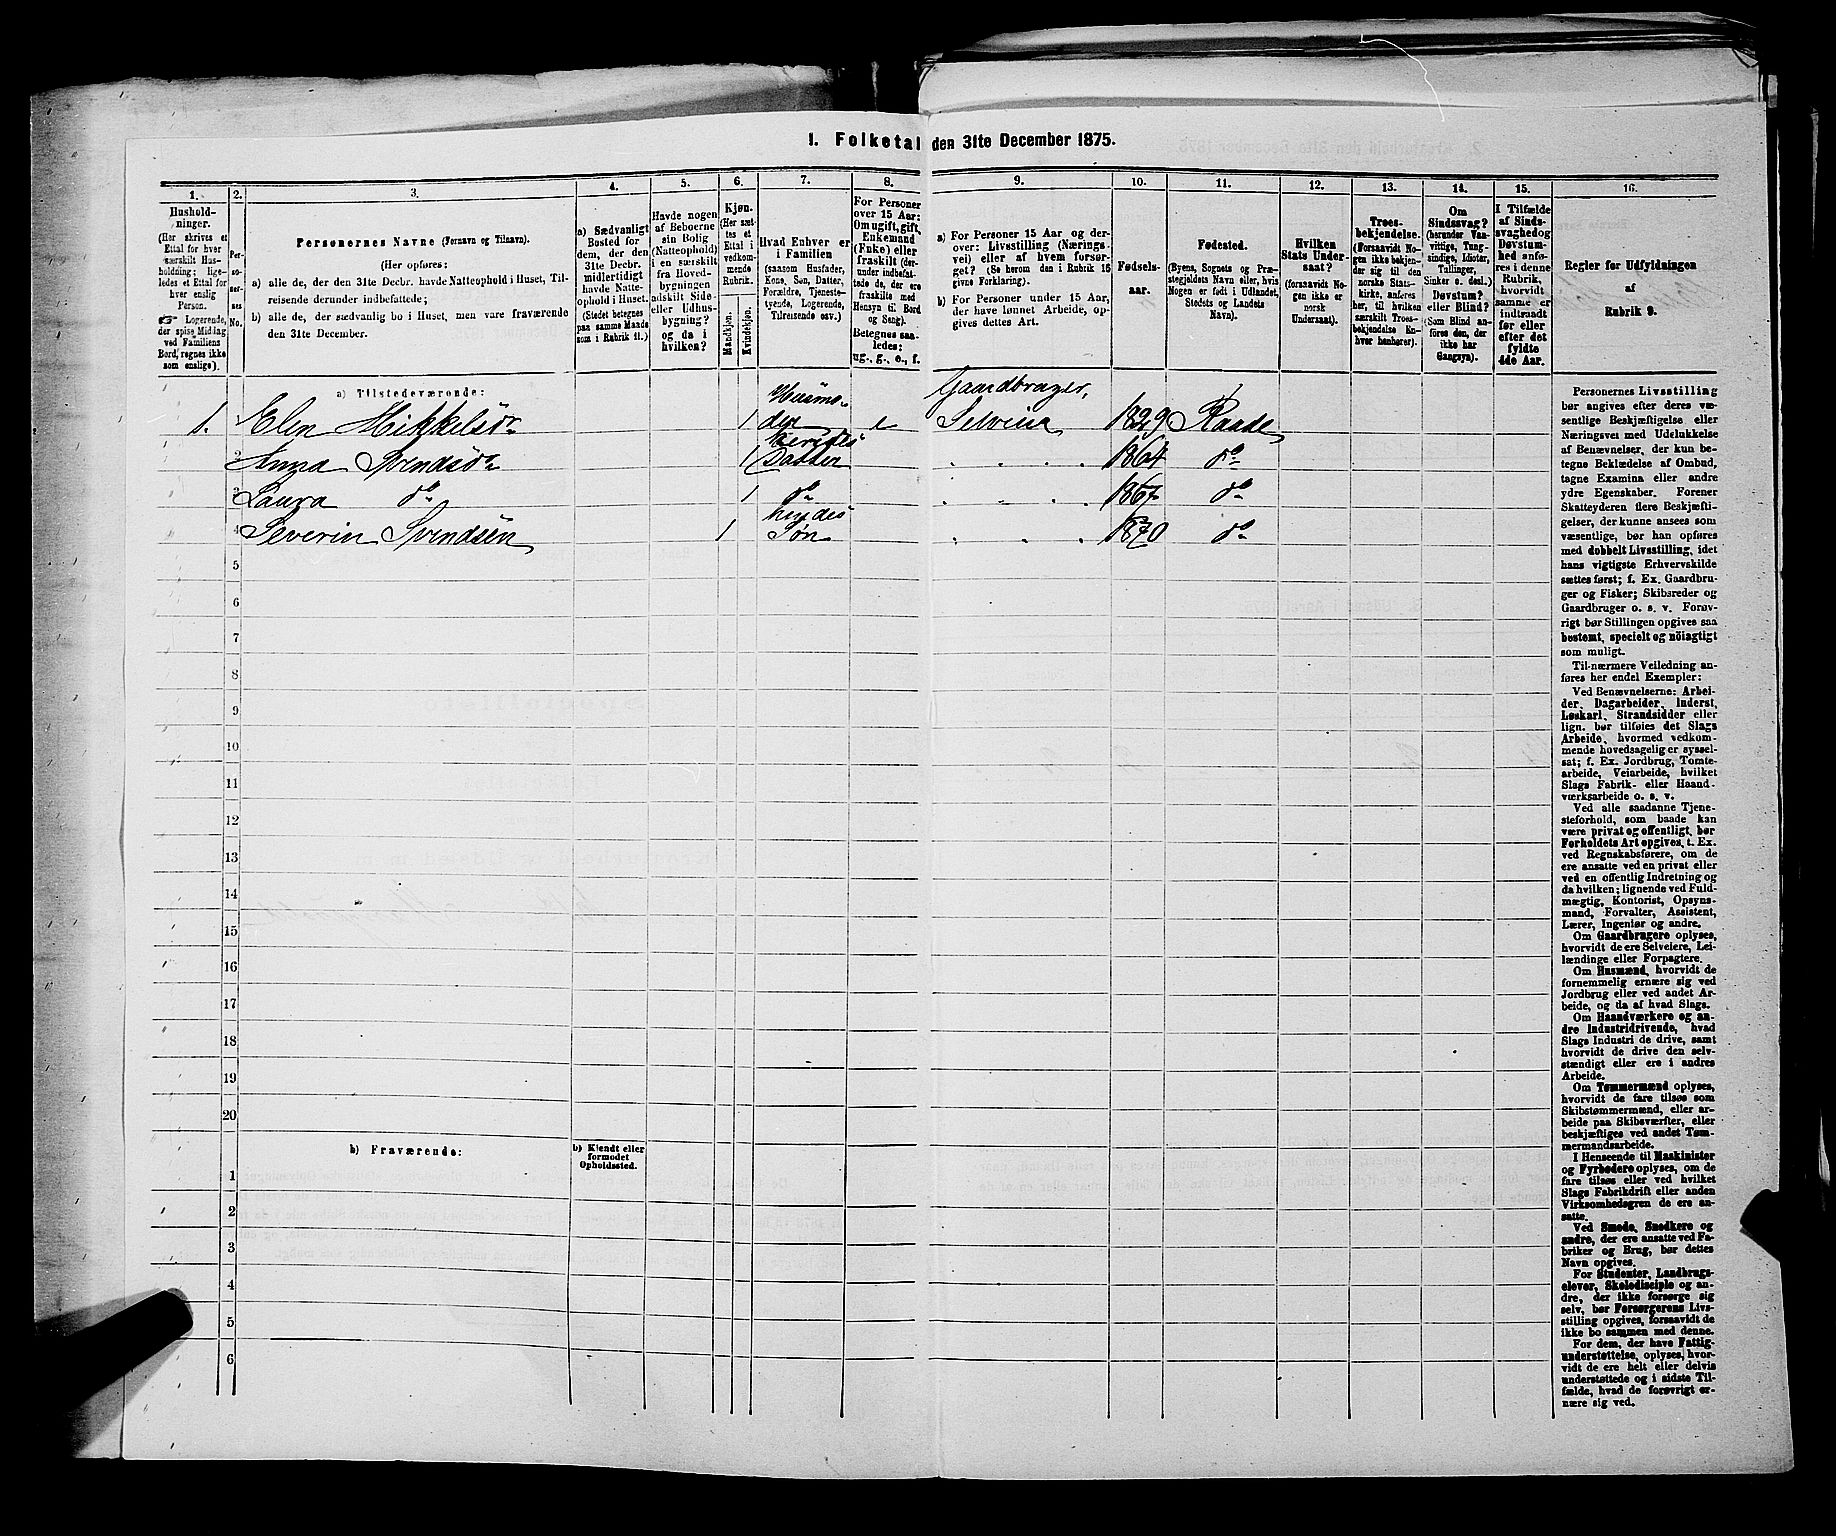 1. Folketal den 31te December 1875.
1.
Hushold-
ninger.
(Her skrives et
Ettal for hver
særskilt Hus-
holdning; lige-
ledes et Ettal for
hver enslig
Person.
☞ Logerende,
der spise Middag
ved Familiens
Bord, regnes ikke
som enslige).
2.
Per-
so-
ner-
nes
No.
3.
Personernes Navne (Fornavn og Tilnavn).
(Her opføres:
a) alle de, der den 31te Decbr. havde Natteophold i Huset, Til-
reisende derunder indbefattede;
b) alle de, der sædvanlig bo i Huset, men vare fraværende
den 31te December.
4.
a) Sædvanligt
Bosted for
dem, der den
31te Decbr.
midlertidigt
havde Natte-
ophold i Huset.
(Stedet betegnes
paa samme Maade
som i Rubrik 11.)
5.
Havde nogen
af Beboerne
sin Bolig
(Natteophold)
i en særskilt
fra Hoved-
bygningen
adskilt Side-
eller Udhus-
bygning?
og da i
hvilken?
6.
Kjøn.
(Her sæt-
tes et
Ettal i
vedkom-
mende
Rubrik.
Mandkjøn.
Kvindekjøn.
7.
Hvad Enhver er
i Familien
(saasom Husfader,
Kone, Søn, Datter,
Forældre, Tjeneste-
tyende, Logerende,
Tilreisende osv.)
8.
For Personer
over 15 Aar:
Om ugift, gift,
Enkemand
(Enke) eller
fraskilt (der-
under indbefat-
tede de, der ere
fraskilte med
Hensyn til Bord
og Seng).
Betegnes saa-
ledes:
ug., g., e., f.
9.
a) For Personer 15 Aar og der-
over: Livsstilling (Nærings-
vei) eller af hvem forsør-
get? (Se herom den i Rubrik 15
givne Forklaring).
b) For Personer under 15 Aar,
der have lønnet Arbeide, op-
gives dettes Art.
10.
Fødsels-
aar.
11.
Fødested.
(Byens, Sognets og Præ-
stegjeldets Navn eller, hvis
Nogen er født i Udlandet,
Stedets og Landets
Navn).
12.
Hvilken
Stats Under-
saat?
(forsaavidt No-
gen ikke er
norsk
Undersaat).
13.
Troes-
bekjendelse.
(Forsaavidt No-
gen ikke bekjen-
der sig til den
norske Stats-
kirke, anføres
her, til hvilken
særskilt Troes-
bekjendelse En-
hver henhører).
14.
Om
Sindssvag?
(herunder Van-
vittige, Tung-
sindige, Idioter,
Tallinger,
Sinker o. desl.)
Døvstum?
eller Blind?
(Som Blind an-
føres den, der
ikke har
Gangsyn).
15.
I Tilfælde
af Sinds-
svaghed og
Døvstum-
hed anfø-
res i denne
Rubrik,
hvorvidt
samme er
indtraadt
før eller
efter det
fyldte
4de Aar.
16.
Regler for Udfyldningen
af
Rubrik 9.
a) Tilstedeværende:
1. 1 Elin Mikkelsdr 1 Husmo-
der e Gaardbruger,
Selveier 1829 Raade
2 Anna Svendsdr 1 hendes
Datter " " " 1864 do
3 Laura do 1 do " " " 1867 do
4 Severin Svendsen 1 hendes
Søn " " " 1870 do
5
6
7
8
9
10
11
12
13
14
15
16
17
18
19
20
b) Fraværende:
b) Kjendt eller
formodet
Opholdssted.
1
2
3
4
5
6
Personernes Livsstilling
bør angives efter deres væ-
sentlige Beskjæftigelse eller
Næringsvei med Udelukkelse
af Benævnelser, der kun be-
tegne Beklædelse af Ombud,
tagne Examina eller andre
ydre Egenskaber. Forener
Skatteyderen flere Beskjæfti-
gelser, der kunne ansees som
væsentlige, bør han opføres
med dobbelt Livsstilling, idet
hans vigtigste Erhvervskilde
sættes først; f. Ex. Gaardbru-
ger og Fisker; Skibsreder og
Gaardbruger o. s. v. Forøv-
rigt bør Stillingen opgives saa
bestemt, specielt og nöiagtigt
som muligt.
Til nærmere Veiledning an-
føres her endel Exempler:
Ved Benævnelserne: Arbei-
der, Dagarbeider, Inderst,
Løskarl, Strandsidder eller
lign. bør tilføies det Slags
Arbeide, hvormed vedkom-
mende hovedsagelig er syssel-
sat; f. Ex. Jordbrug, Tomte-
arbeide, Veiarbeide, hvilket
Slags Fabrik- eller Haand-
værksarbeide o. s. v.
Ved alle saadanne Tjene-
steforhold, som baade kan
være privat og offentligt, bør
Forholdets Art opgives, f. Ex.
ved Regnskabsførere, om de
ere ansatte ved en privat eller
ved en offentlig Indretning og
da hvilken; lignende ved Fuld-
mægtig, Kontorist, Opsyns-
mand, Forvalter, Assistent,
Lærer, Ingeniør og andre.
Om Gaardbrugere oplyses,
hvorvidt de ere Selveiere, Lei-
lændinge eller Forpagtere.
Om Husmænd, hvorvidt de
fornemmelig ernære sig ved
Jordbrug eller ved andet Ar-
beide, og da af hvad Slags.
Om Haandværkere og an-
dre Industridrivende, hvad
Slags Industri de drive, samt
hvorvidt de drive den selv-
stændigt eller ere i andres
Arbeide.
Om Tømmermænd oplyses,
hvorvidt de fare tilsøs som
Skibstømmermænd, eller ar-
beide paa Skibsværfter, eller
beskjæftiges ved andet Tøm-
mermandsarbeide.
I Henseende til Maskinister
og Fyrbødere oplyses, om de
fare tilsøs eller ved hvilket
Slags Fabrikdrift eller anden
Virksomhedsgren de ere an-
satte.
Ved Smede, Snedkere og
andre, der ere ansatte ved Fa-
briker og Brug, bør dettes
Navn opgives.
For Studenter, Landbrugs-
elever, Skoledisciple og an-
dre, der ikke forsørge sig
selv, bør Forsørgerens Livs-
stilling opgives, forsaavidt de
ikke bo sammen med denne.
For dem, der have Fattig-
understøttelse, oplyses, hvor-
vidt de ere helt eller delvis
understøttede og i sidste Til-
fælde, hvad de forøvrigt er-
nære sig ved.